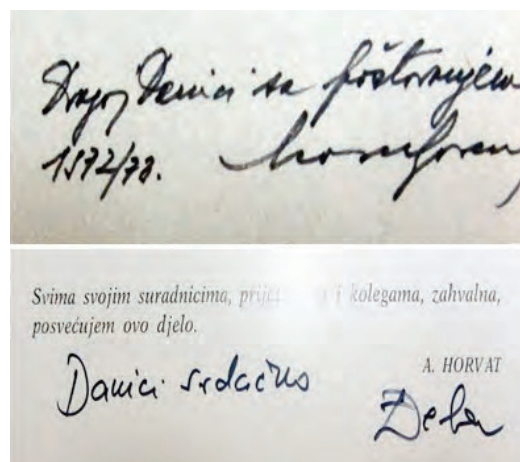 Dragoj Danici sa poštovanjem
1972/73.
Svima svojim suradnicima, i kolegama, zahvalna,
posvećujem ovo djelo.
A. HORVAT
Danici srdačno